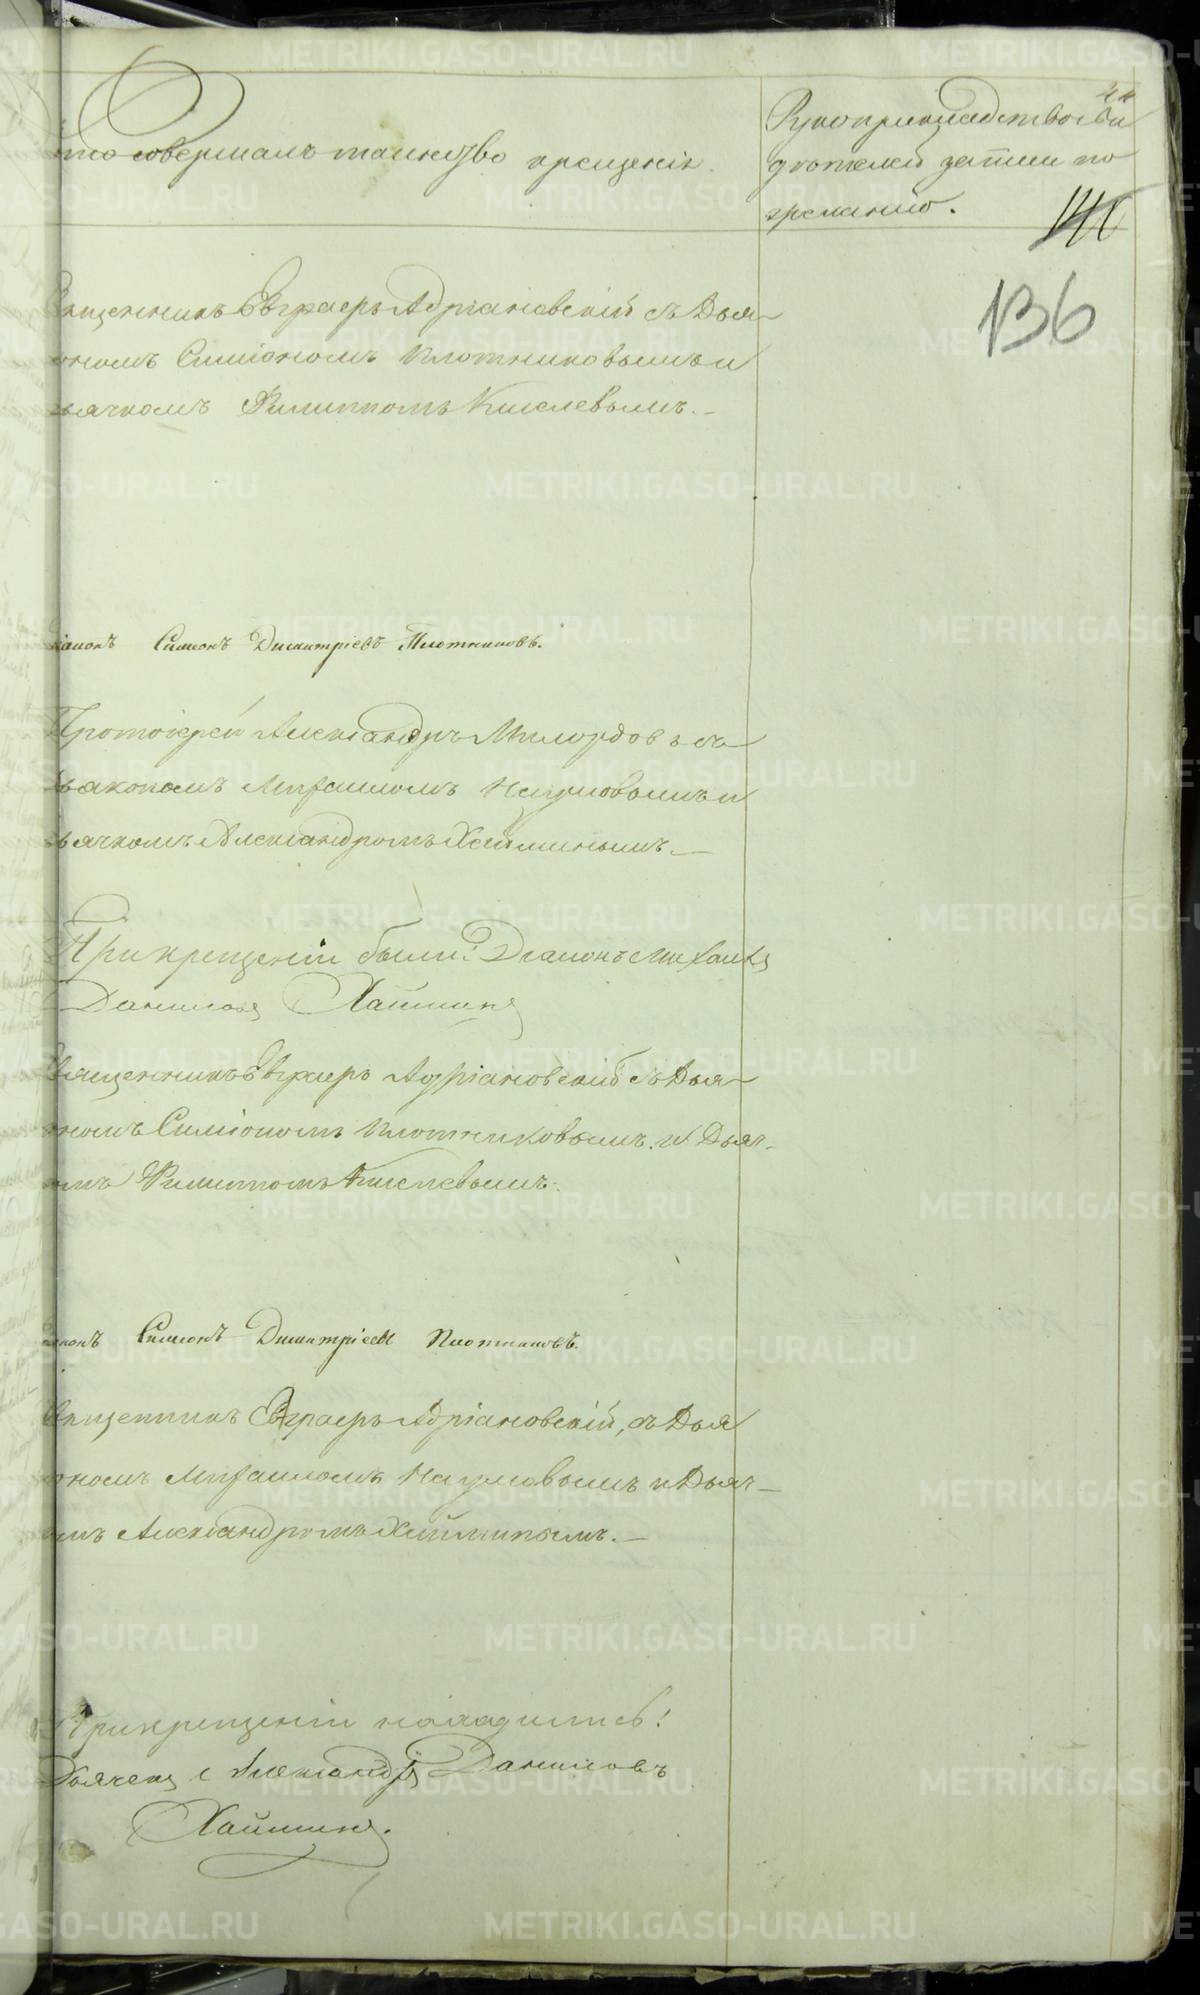 Кто совершалъ таинство крещенія.
Рукоприкладство сви
дѣтелей записи по
желанію.
141
136
Священникъ Евграфъ Адріановскій съ Дья-
кономъ Симіономъ Плотниковымъ и
дьячкомъ Филиппомъ Киселевымъ.-
Діаконъ Симеонъ Димитріевъ Плотниковъ.
Протоіерей Александръ Милордовъ съ
дьякономъ Михаиломъ Наумовымъ и
дьячкомъ Александромъ Хайминымъ.-
При крещеніи были: Діаконъ Михаилъ
Даниловъ Хайминъ
Священникъ Евграфъ Адріановскій съ Дья-
кономъ Симіономъ Плотниковымъ и Дьяч-
комъ Филиппомъ Киселевымъ.
Діаконъ Симеонъ Димитріевъ Плотниковъ.
Священникъ Евграфъ Адріановскій, съ Дья
кономъ Михаиломъ Наумовымъ и Дьяч-
комъ Александромъ Хайминымъ.-
При крещеніи находились:
Дьячекъ Александръ Даниловъ
Хайминъ.
METRIKI.GASO-URAL.RU